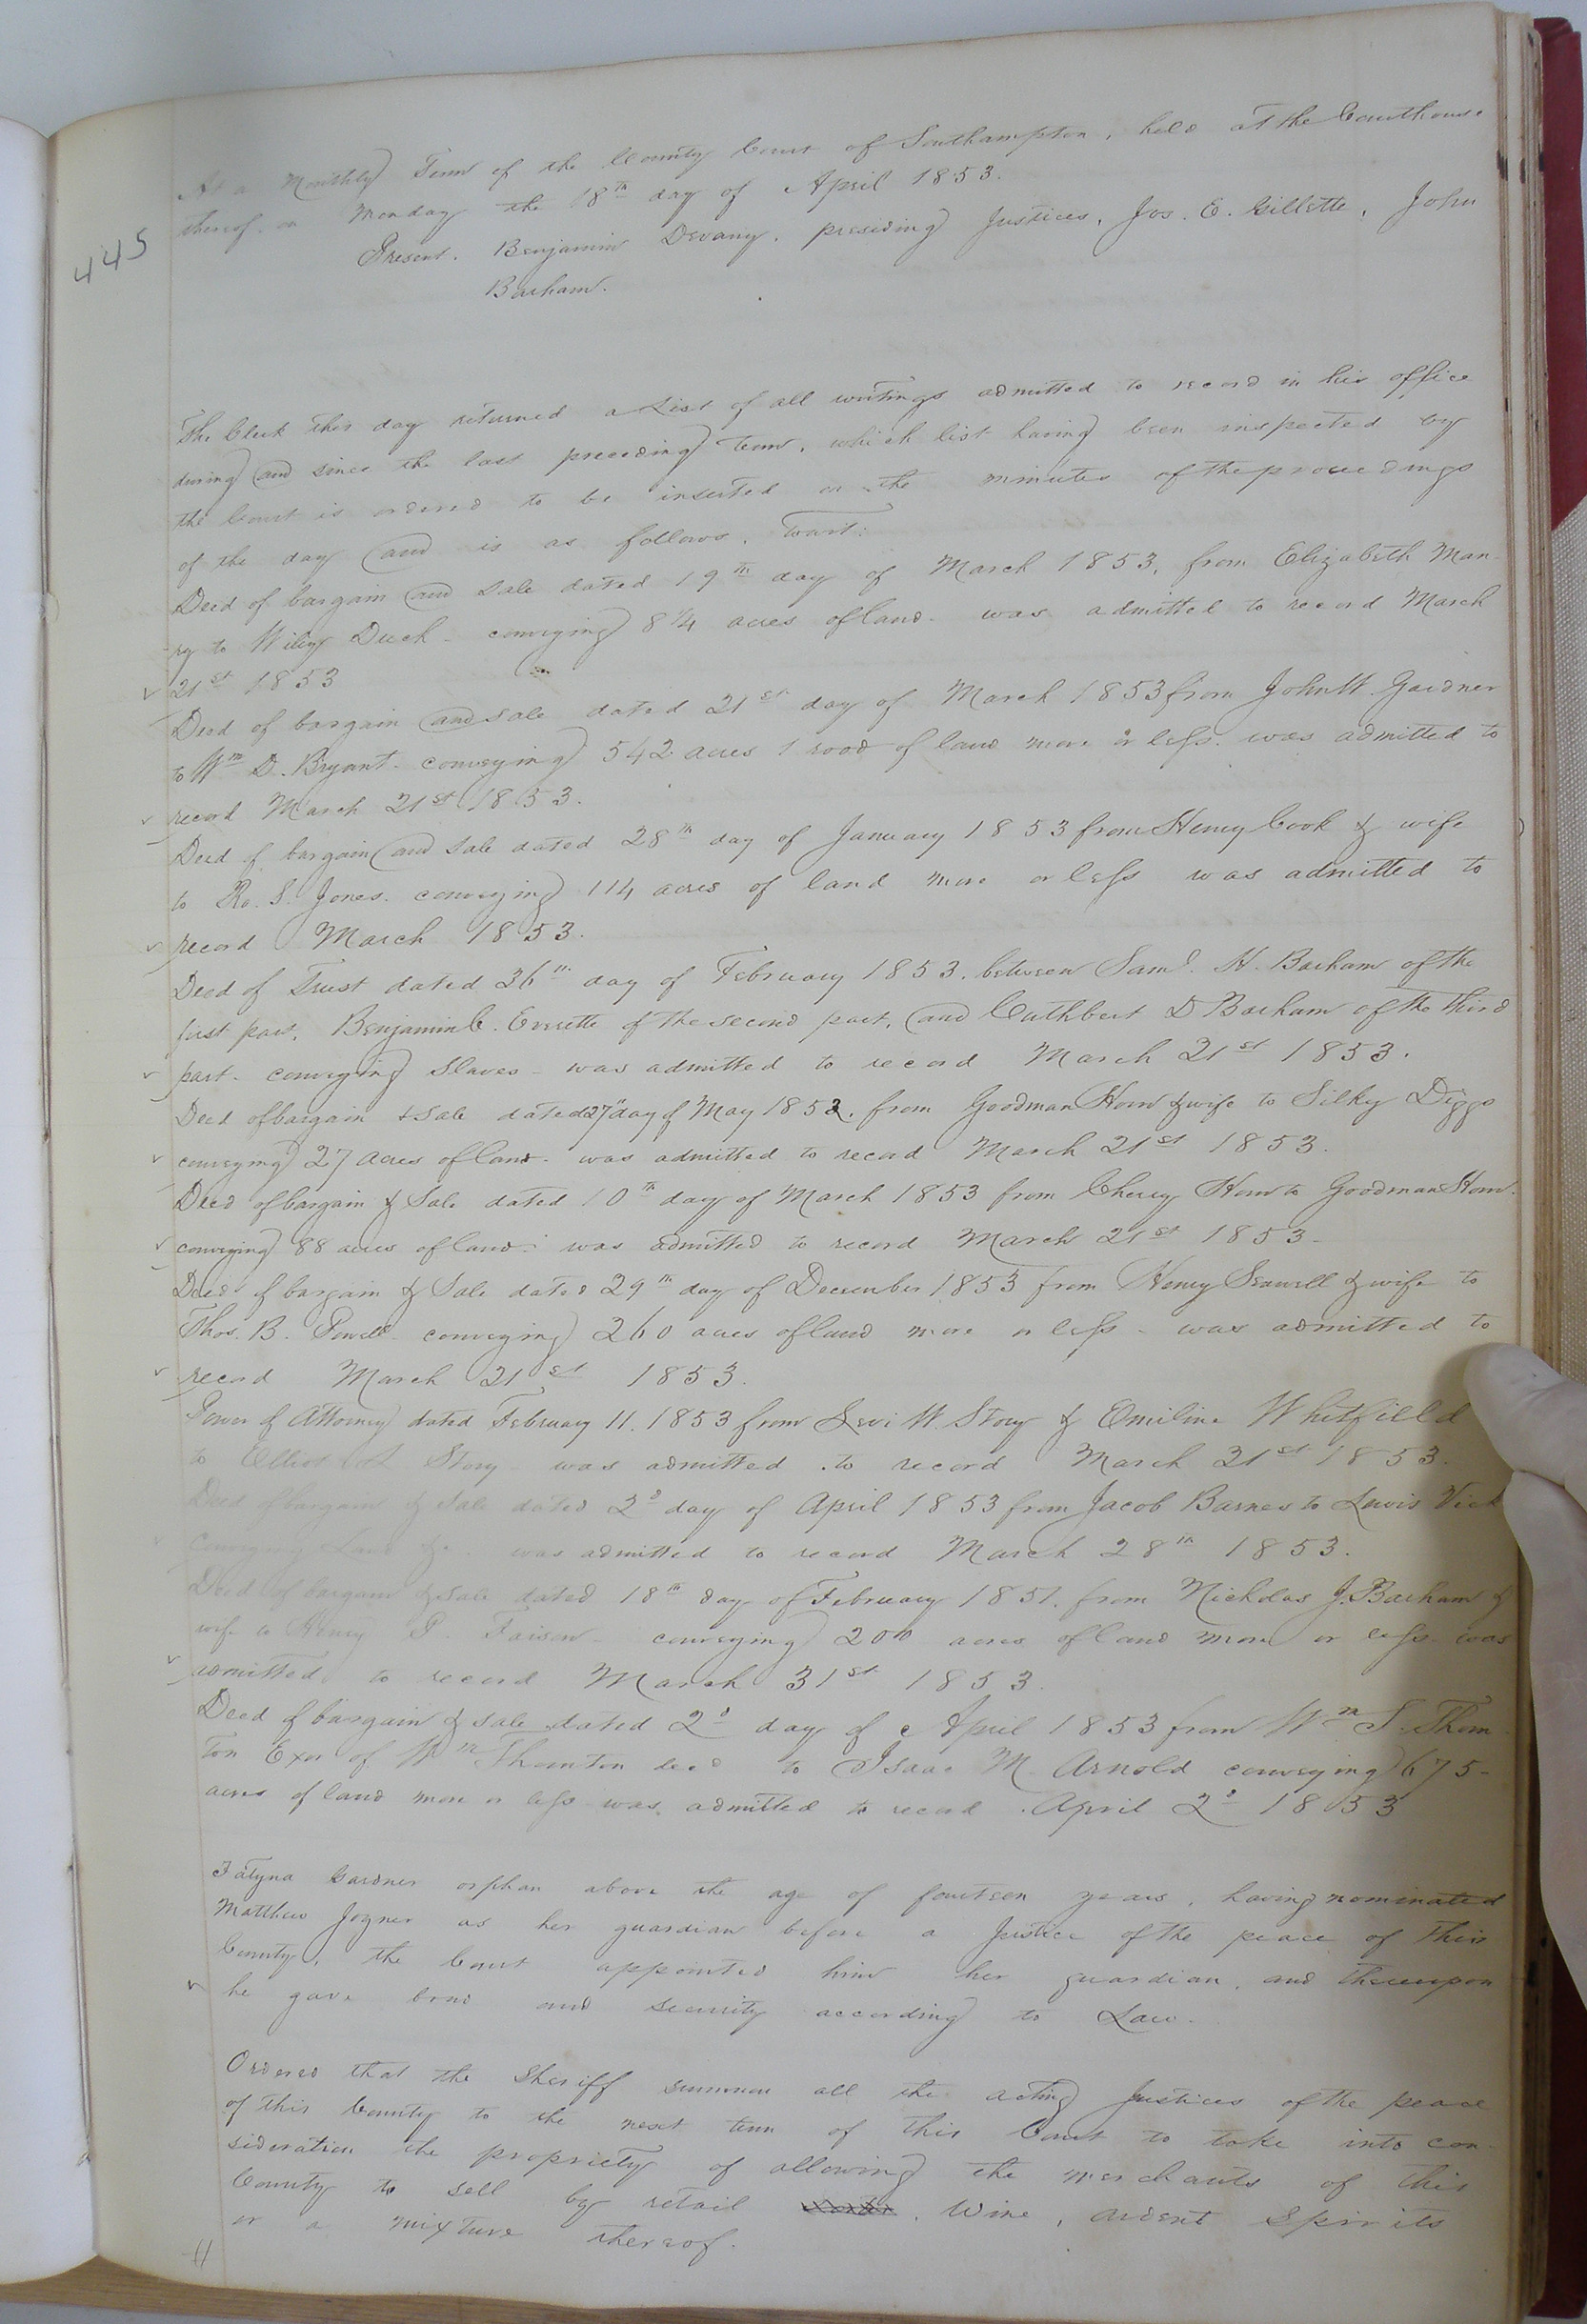 445
At a Monthly Term of the County Court of Southampton, held at the Courthouse
thereof. on Monday the 18th day of April 1853.
Present. Benjamin Devany. presiding Justices, Jos. E. Gillette, John
Barham.
The Clerk this day returned a List of all writings admitted to record in his office
during and since the last preceding term, which list having been inspected by
the Court is ordered to be inserted on the minutes of the proceedings
of the day and is as follows, towit:
Deed of bargain and sale dated 19th day of March 1853, from Elizabeth Man-
ry to Wiley Duck - conveying 8 1/4 acres of land - was admitted to record March
21st 1853
Deed of bargain and sale dated 21st day of March 1853 from John W. Gardner
to Wm D. Bryant - conveying 542 acres 1 rood of land more or less. was admitted to
record March 21st 1853.
Deed of bargain and sale dated 28th day of January 1853 from Henry Cook & wife
to Ro. S. Jones. conveying 114 acres of land more or less was admitted to
record March 1853.
Deed of Trust dated 26th day of February 1853. between Saml. H. Barham of the
first part, Benjamin C. Everette of the second part, and Cuthbert D Barham of the third
part - conveying Slaves - was admitted to record March 21st 1853.
Deed of bargain & sale dated 27th day of May 1852. from Goodman Horn & wife to Silky Diggs
conveying 27 acres of land - was admitted to record March 21st 1853.
Deed of bargain & Sale dated 10th day of March 1853 from Cherry Horn to Goodman Horn.
conveying 88 acres of land - was admitted to record March 21st 1853 -
Deed of bargain & Sale dated 29th day of December 1853 from Henry Seawell & wife to
Thos. B. Powell - conveying 260 acres of land more or less - was admitted to
record March 21st 1853.
Power of Attorney dated February 11. 1853 from Levi W. Story & Emiline Whitfield
to Elliot L Story - was admitted to record March 21st 1853.
Deed of bargain & Sale dated 2d day of April 1853 from Jacob Barnes to Lewis Vick
conveying Land &c. was admitted to record March 28th 1853.
Deed of bargain & sale dated 18th day of February 1851. from Nicholas J. Barham &
wife to Henry P. Faison - conveying 200 acres of land more or less was
admitted to record March 31st 1853.
Deed of bargain & sale dated 2d day of April 1853 from Wm S. Thorn
ton Exor of Wm Thornton decd to Isaac M Arnold conveying 675 -
acres of land more or less was admitted to record April 2d 1853
Gardner orphan above the age of fourteen years, having nominated
Matthew Joyner as her guardian before a Justice of the peace of this
County, the Court appointed him her guardian, and thereupon
he gave bond and security according to Law.
Ordered that the Sheriff summon all the acting Justices of the peace
of this County to the next term of this Court to take into con-
sideration the propriety of allowing the merchants of this
County to sell by retail Wine, ardent Spirits
or a mixture thereof.